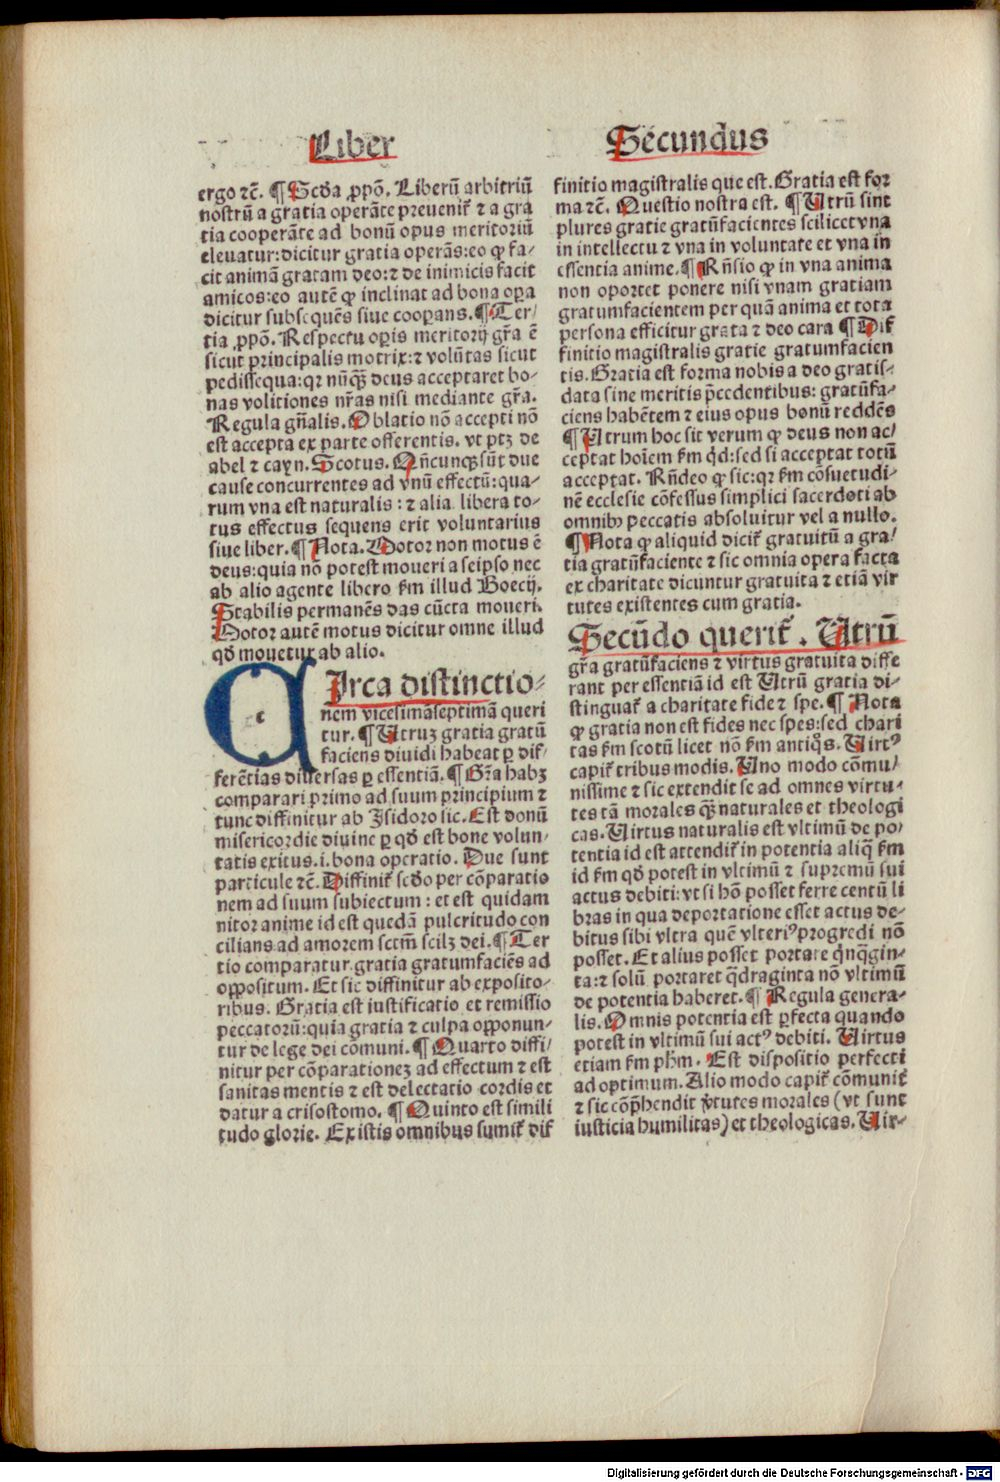 Liber
Secundus
ergo ⁊c̃. ¶ Scd̃a ꝓpõ. Liberũ arbitriũ
nostrũ a gratia operãte preuenit᷑ ⁊ a gra
tia cooperãte ad bonũ opus meritoriũ
eleuatur: dicitur gratia operãs: eo ꝙ fa-
cit animã gratam deo: ⁊ de inimicis facit
amicos: eo autẽ ꝙ inclinat ad bona oꝑa
dicitur subsequẽs siue cooꝑans. ¶ Ter/
tia ꝓpõ. Respectu oꝑis meritorij gr̃a ẽ
sicut principalis motrix: ⁊ volũtas sicut
pedissequa: qr nũq̃ꝫ deus acceptaret bo-
nas volitiones nr̃as nisi mediante gr̃a.
Regula gñalis. Oblatio nõ accepti nõ
est accepta ex parte offerentis. vt ptꝫ de
abel ⁊ cayn. Scotus. Qñcunqꝫ sũt due
cause concurrentes ad vnũ effectũ: qua-
rum vna est naturalis: ⁊ alia libera to-
tus effectus sequens erit voluntarius
siue liber. ¶ Nota. Motor non motus ẽ
deus: quia nõ potest moueri a seipso nec
ab alio agente libero ẜm illud Boecij.
Stabilis permanẽs das cũcta moueri.
Motor autẽ motus dicitur omne illud
qd̃ mouetur ab alio.
CIrca distinctio-
nem vicesimãseptimã queri
tur. ¶ Utruꝫ gratia gratũ
faciens diuidi habeat ꝑ dif-
ferẽtias diuersas ꝑ essentiã. ¶ Gr̃a habꝫ
comparari primo ad suum principium ⁊
tunc diffinitur ab Isidoro sic. Est donũ
misericordie diuine ꝑ qd̃ est bone volun-
tatis exitus .i. bona operatio. Due sunt
particule ⁊c̃. Diffinit᷑ scd̃o per cõparatio
nem ad suum subiectum: et est quidam
nitor anime id est quedã pulcritudo con
cilians ad amorem sctm̃ scilꝫ dei. ¶ Ter
tio comparatur gratia gratumfaciẽs ad
oppositum. Et sic diffinitur ab exposito-
ribus. Gratia est iustificatio et remissio
peccatorũ: quia gratia ⁊ culpa opponun-
tur de lege dei comuni. ¶ Quarto diffi/
nitur per cõparationeꝫ ad effectum ⁊ est
sanitas mentis ⁊ est delectatio cordis et
datur a crisostomo. ¶ Quinto est simili
tudo glorie. Ex istis omnibus sumit᷑ dif
finitio magistralis que est. Gratia est for
ma ⁊c̃. Questio nostra est. ¶ Utrũ sint
plures gratie gratũfacientes scilicet vna
in intellectu ⁊ vna in voluntate et vna in
essentia anime. ¶ Rñsio ꝙ in vna anima
non oportet ponere nisi vnam gratiam
gratumfacientem per quã anima et tota
persona efficitur grata ⁊ deo cara ¶ Dif
finitio magistralis gratie gratumfacien
tis. Gratia est forma nobis a deo gratis-
data sine meritis p̃cedentibus: gratũfa-
ciens habẽtem ⁊ eius opus bonũ reddẽs
¶ Utrum hoc sit verum ꝙ deus non ac/
ceptat hoĩem ẜm q̃d: sed si acceptat totũ
acceptat. Rñdeo ꝙ sic: qr ẜm cõsuetudi-
nẽ ecclesie cõfessus simplici sacerdoti ab
omnibꝫ peccatis absoluitur vel a nullo.
¶ Nota ꝙ aliquid dicit᷑ gratuitũ a gra/
tia gratũfaciente ⁊ sic omnia opera facta
ex charitate dicuntur gratuita ⁊ etiã vir
tutes existentes cum gratia.
Secũdo querit᷑. Utrũ
gr̃a gratũfaciens ⁊ virtus gratuita diffe
rant per essentiã id est Utrũ gratia di-
stinguat᷑ a charitate fide ⁊ spe. ¶ Nota
ꝙ gratia non est fides nec spes: sed chari
tas ẜm scotũ licet nõ ẜm antiq̃os. Uirtꝰ
capit᷑ tribus modis. Uno modo cõmu/
nissime ⁊ sic extendit se ad omnes virtu-
tes tã morales qꝫ̃ naturales et theologi
cas. Uirtus naturalis est vltimũ de po/
tentia id est attendit᷑ in potentia aliq̃ ẜm
id ẜm qd̃ potest in vltimũ ⁊ supremũ sui
actus debiti: vt si hõ posset ferre centũ li
bras in qua deportatione esset actus de-
bitus sibi vltra quẽ vlteriꝰ progredi nõ
posset. Et alius posset portare q̃nq̃gin-
ta: ⁊ solũ portaret q̃draginta nõ vltimũ
de potentia haberet. ¶ Regula genera-
lis. Omnis potentia est ꝑfecta quando
potest in vltimũ sui actꝰ debiti. Uirtus
etiam ẜm ph̃m. Est dispositio perfecti
ad optimum. Alio modo capit᷑ cõmunit᷑
⁊ sic cõp̃hendit v̾tutes morales (vt sunt
iusticia humilitas) et theologicas. Uir-
Digitalisierung gefördert durch die Deutsche Forschungsgemeinschaft - DFG